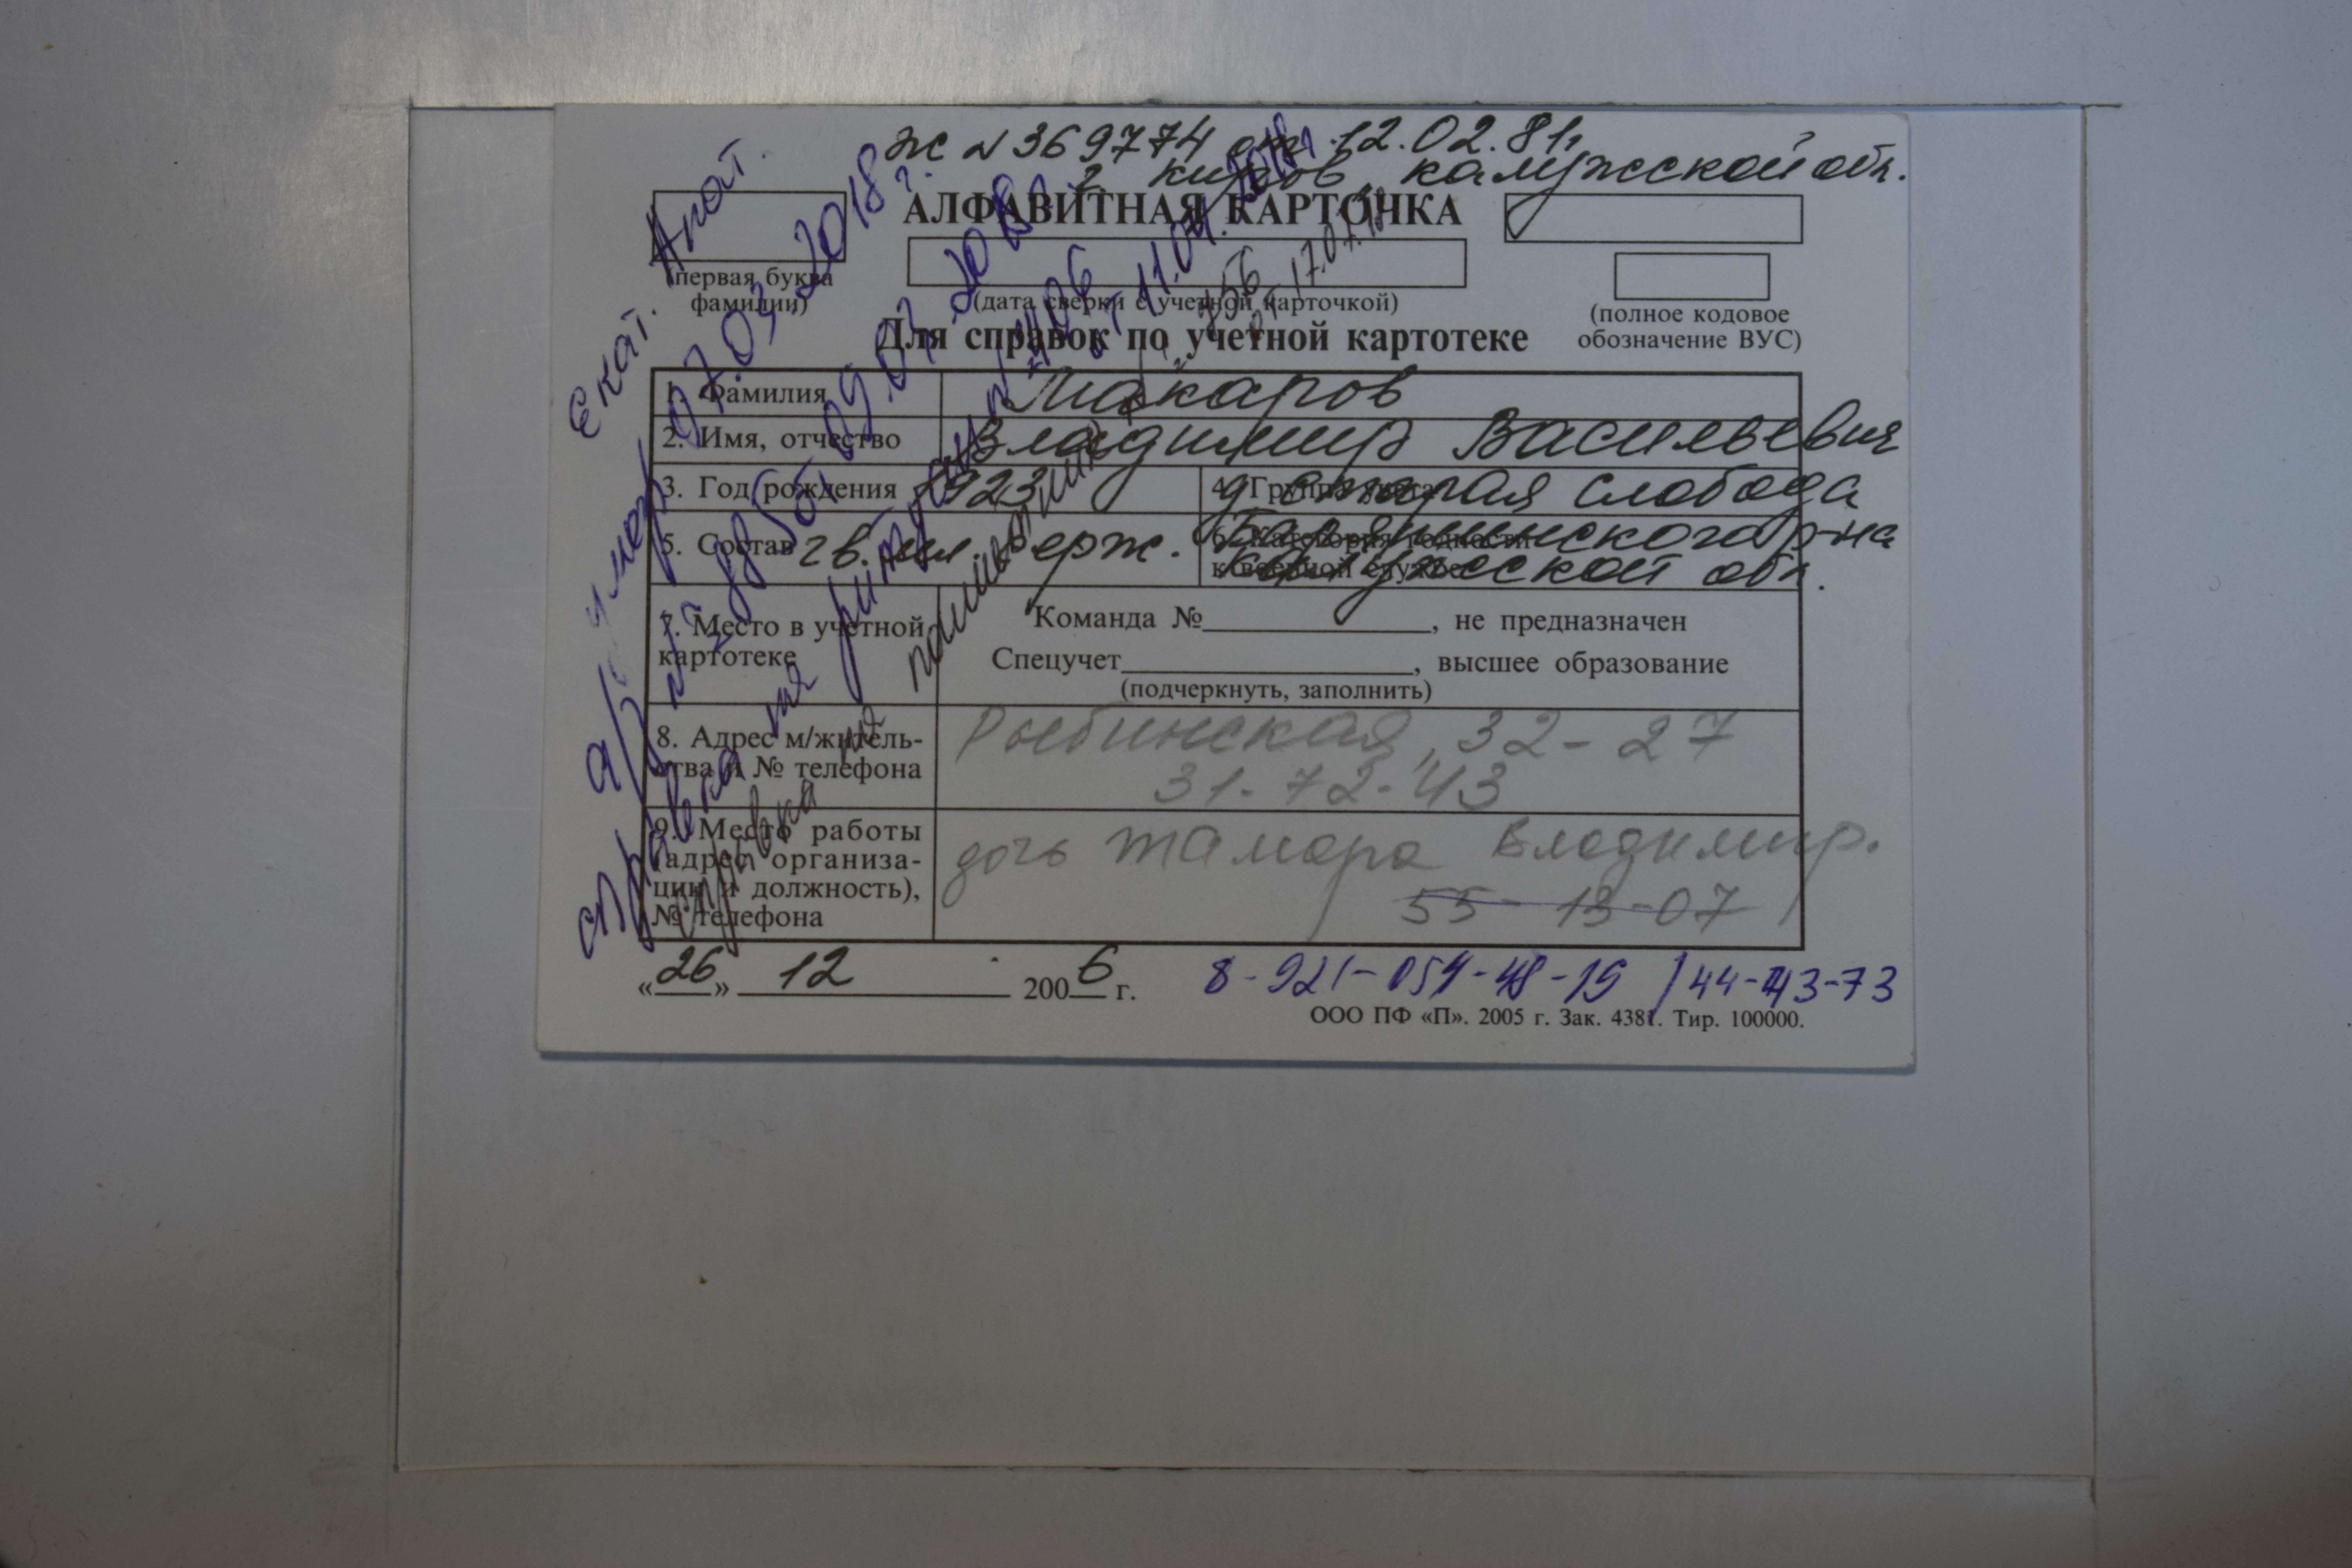 Ж № 369774 от 12.02.81,
г Киров, Калужской обл.
АЛФАВИТНАЯ КАРТОЧКА
(первая буква
фамилии)
(дата сверки с учетной карточкой)
(полное кодовое
обозначение ВУС)
Для справок по учетной картотеке
1. Фамилия Макаров
2. Имя, отчество Владимир Васильевич
3. Год рождения 1923 4. Группа учета д Старая Слобода
5. Состав гв. мл. серж. 6. Категория годности
к военной службе Барятинского р-на
Калужской обл.
7. Место в учетной
картотеке
Команда №, не предназначен
Спецучет, высшее образование
(подчеркнуть, заполнить)
8. Адрес м/житель-
ства и № телефона
Рыбинская, 32-27
31-72-43
9. Место работы
(адрес организа-
ции и должность),
№ телефона
дочь Тамара Владимир.
55-13-07
«26» 12 2006 г.
8-921-054-48-19 / 44-43-73
ООО ПФ «П». 2005 г. Зак. 4381. Тир. 100000.
Екат. Апат.
умер 07.03.2018 г.
справка на
справка на памятник
от 11.04.2018
956
от 17.07.18